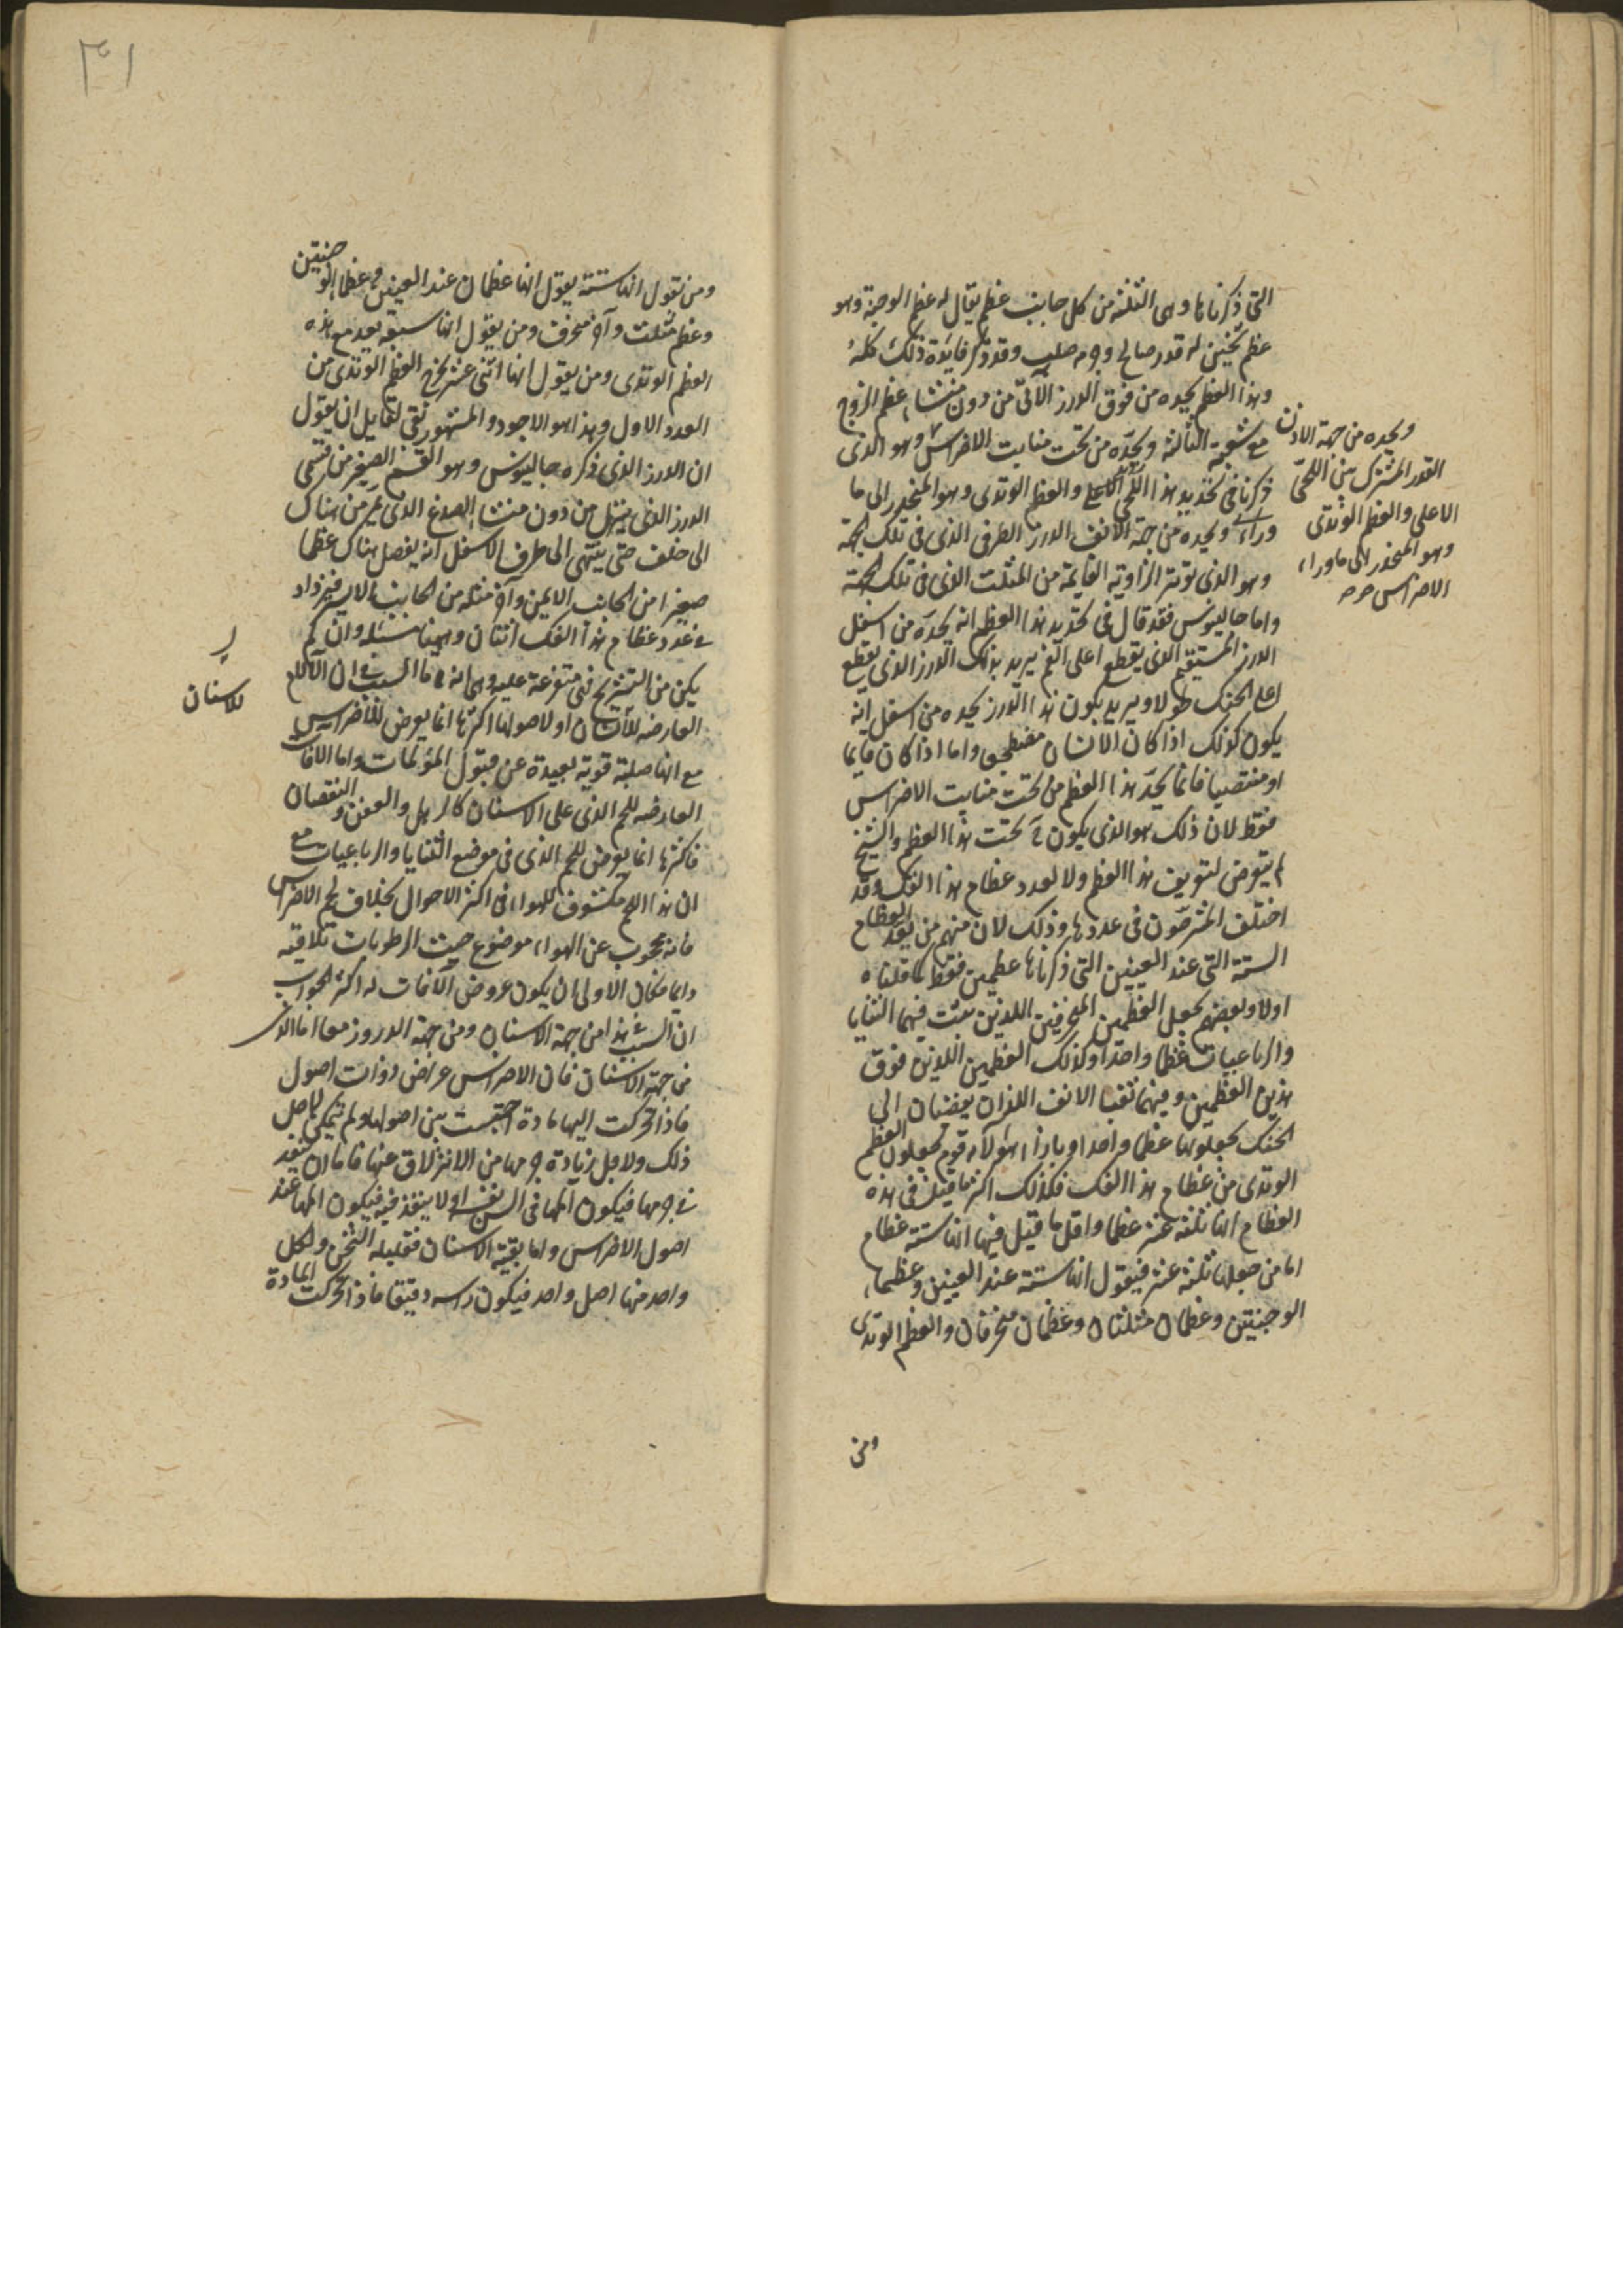 التى ذكرناها وهى الثلثه من كل جانب عظم يقال له عظم الوجنة وهو
عظم ثخين له قدر صالح وجرمه صلب وقد ذكر فايدة ذلك كله
وهذا العظم يحده من فوق الدرز الآتى من دون منشاء عظم الزوج
مع شعبته الثالثه ويحده من تحت منابت الاضراس وهو الذى
ذكرنا فى تحديد هذا اللحى الاعلى والعظم الوتدى وهو المنحدر الى ما
وراء ويحده من جهة الانف الدرز الطرفى الذى فى تلك الجهة
وهو الذى يوتر الزاوية القايمة من المثلث الذى فى تلك الجهة
واما جالينوس فقد قال فى تحديد هذا العظم انه يحده من اسفل
الدرز المستقيم الذى يقطع اعلى الفم يريد بذلك الدرز الذى يقطع
اعلى الحنك طولا ويريد بكون هذا الدرز يحده من اسفل انه
يكون كذلك اذا كان الانسان مضطجعا واما اذا كان قايما
او منتصبا فانما يحد هذا العظم من تحت منابت الاضراس
فقط لان ذلك هو الذى يكون تحت هذا العظم والشيخ
لم يتعرض لتعريف هذا العظم ولا لعدد عظام هذا الفك وقد
اختلف المشرحون فى عددها وذلك لان منهم من يعد العظام
الستة التى عند العينين التى ذكرناها عظمين فقط كما قلناه
اولا وبعضهم يجعل العظمين المنحرفين اللذين نبتت فيهما الثنايا
والرباعيات عظما واحدا وكذلك العظمين اللذين فوق
هذين العظمين وفيهما ثقبا الانف اللذان يفضيان الى
الحنك يجعلونهما عظما واحدا وبازاء هولاء قوم يجعلون العظم
الوتدى من عظام هذا الفك فلذلك اكثر ما قيل فى هذه
العظام انها ثلثة عشر عظما واقل ما قيل فيها انها ستة عظام
اما من جعلها ثلثة عشر فيقول انها ستة عند العينين وعظما
الوجنتين وعظمان مثلثان وعظمان منحرفان والعظم الوتدى
ومن
ويحده من جهة الاذن
القدر المشترك بين اللحى
الاعلى والعظم الوتدى
وهو المنحدر الى ما وراء
الاضراس صح
٣١
ومن يقول انها ستة يقول انها عظمان عند العينين وعظما الوجنتين
وعظم مثلث وآخر منحرف ومن يقول انها سبعة يعد مع هذه
العظم الوتدى ومن يقول انها اثنى عشر يخرج العظم الوتدى من
العدد الاول وهذا هو الاجود والمشهور بقى لقايل ان يقول
ان الدرز الذى ذكره جالينوس وهو القسم الصغير من قسمى
الدرز الذى ينزل من دون منشاء الصدغ الذى يمر من هناك
الى خلف حتى ينتهى الى طرف الاسفل انه يفصل هناك عظما
صغيرا من الجانب الايمن وآخر مثله من الجانب الايسر فيزداد
فى عدد عظام هذا الفك اثنان وههنا مسئلة وان لم
يكن من التشريح فهى متفرعة عليه وهى انه ما السبب فى ان الآلام
العارضه للاسنان او لاصولها اكثرها انما يعرض للاضراس
مع انها صلبة قوية بعيدة عن قبول المؤلمات واما الآفات
العارضه للحم الذى على الاسنان كالرهل والعفن والنقصان
فاكثرها انما يعرض للحم الذى فى موضع الثنايا والرباعيات مع
ان هذا اللحم مكشوف للهواء فى اكثر الاحوال بخلاف لحم الاضراس
فانه محجوب عن الهواء موضوع حيث الرطوبات تلاقيه
دايما فكان الاولى ان يكون عروض الآفات له اكثر الجواب
ان السبب فى هذا من جهة الاسنان ومن جهة الدروز معا اما الذى
من جهة الاسنان فان الاضراس عراض ذوات اصول
فاذا تحركت اليها مادة احتبست بين اصولها ولم تتمكن لاجل
ذلك ولاجل زيادة جرمها من الانزلاق عنها فاما ان تنفذ
فى جرمها فيكون المها فى السن نفسها او لا ينفذ فيه فيكون المها عند
اصول الاضراس واما بقية الاسنان فقليلة الثخن ولكل
واحد منها اصل واحد فيكون راسه دقيقا فاذا تحركت المادة
للاسنان